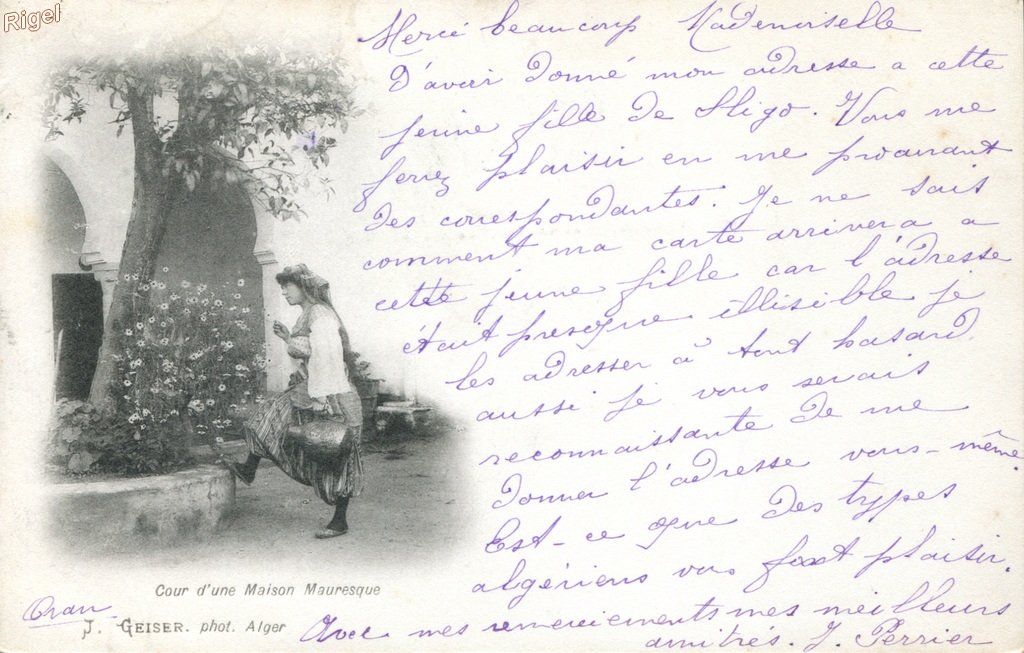 Rigel
Merci beaucoup Mademoiselle
D'avoir donné mon adresse a cette
jeune fille de Sligo. Vous me
ferez plaisir en me procurant
des correspondantes. Je ne sais
comment ma carte arrivera a
cette jeune fille car l'adresse
était presque illisible je
les adresser à tout hasard.
aussi je vous serais
reconnaissante de me
donner l'adresse vous-même.
Est-ce que des types
algériens vous font plaisir.
Avec mes remerciements mes meilleurs
amitiés. J. Perrier
Cour d'une Maison Mauresque
Oran
J. GEISER. phot. Alger